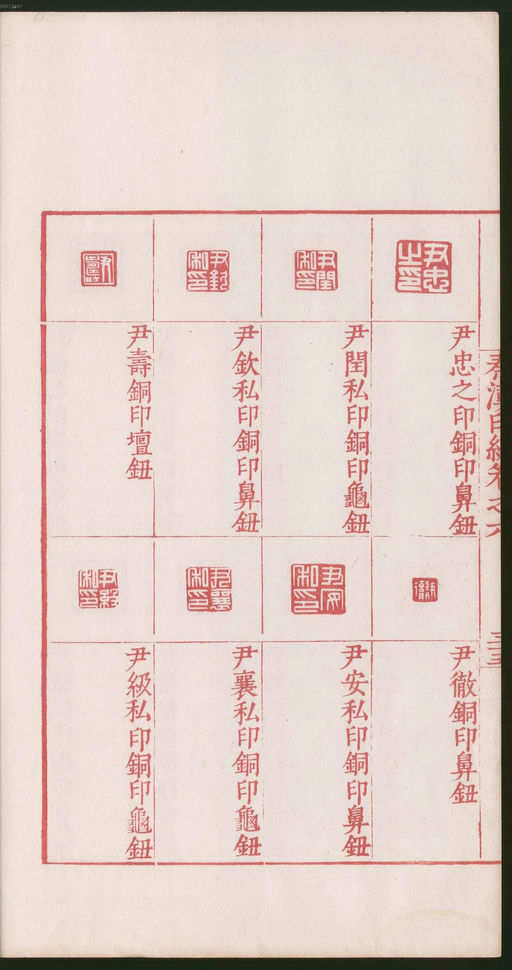 尹忠之印銅印鼻鈕
尹閏私印銅印龜鈕
尹欽私印銅印鼻鈕
尹壽銅印壇鈕
尹徹銅印鼻鈕
尹安私印銅印鼻鈕
尹襄私印銅印龜鈕
尹級私印銅印龜鈕